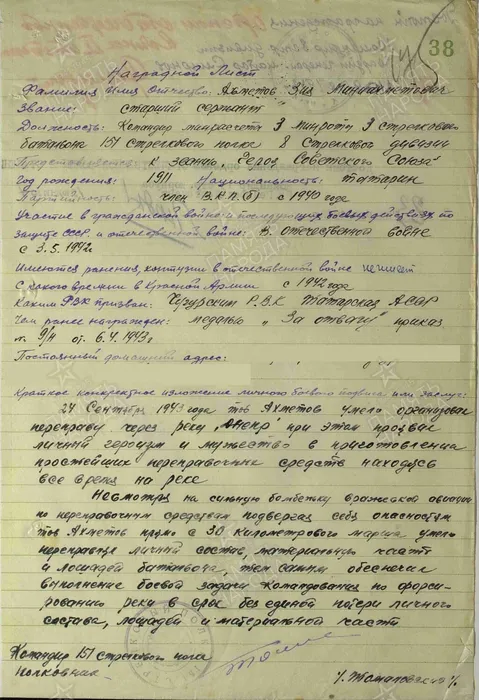 38
Наградной Лист
Фамилия Имя Отчество: Ахметов Зия Миниахметович
Звание: старший сержант
Должность: Командир минрасчета 3 минроты 3 стрелкового
батальона 151 стрелкового полка 8 стрелковой дивизии
Представляется: к званию „Герой Советского Союза“
Год рождения: 1911 Национальность: татарин
Партийность: член ВКП(б) с 1940 года
Участие в гражданской войне и последующих боевых действиях по
защите СССР и отечественной войне: В отечественной войне
с 3.5.1942
Имеются ранения, контузии в отечественной войне не имеет
С какого времени в Красной Армии с 1942 года
Каким РВК призван: РВК Татарская АССР
Чем ранее награжден: медалью „За отвагу“ приказ
№ 9/н от 6.4.1943г
Постоянный домашний адрес:
Краткое конкретное изложение личного боевого подвига или заслуг:
24 Сентября 1943 года тов Ахметов умело организовал
переправу через реку „Днепр“ при этом проявил
личный героизм и мужество в приготовлении
простейших переправочных средств находясь
все время на реке
Несмотря на сильную бомбежку вражеской авиации
по переправочным средствам подвергая себя опасностям
тов Ахметов прямо с 30 километрового марша умело
переправил личный состав, материальную часть
и лошадей батальона, тем самым обеспечил
выполнение боевой задачи командования по форси-
рованию реки в срок без единой потери личного
состава, лошадей и материальной части
Командир 151 стрелкового полка
полковник